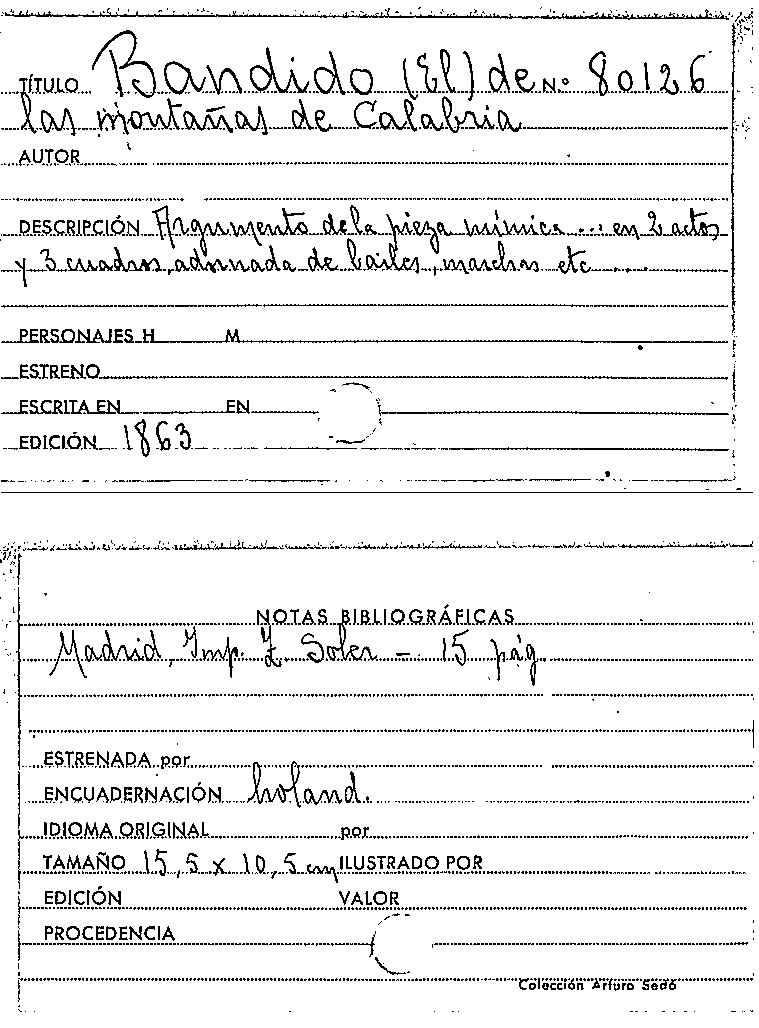 TÍTULO Bandido (El) de Nº 80126
las montañas de Calabria
AUTOR
DESCRIPCIÓN Argumento de la pieza mímica ... en 2 actos
y 3 cuadros, adornada de bailes, marchas etc ....
PERSONAJES H M
ESTRENO
ESCRITA EN EN
EDICIÓN 1863
NOTAS BIBLIOGRÁFICAS
Madrid, Imp. Z. Soler - 15 pág.
ESTRENADA por
ENCUADERNACIÓN holand.
IDIOMA ORIGINAL por
TAMAÑO 15,5 x 10,5 cm ILUSTRADO POR
EDICIÓN VALOR
PROCEDENCIA
Colección Arturo Sedó